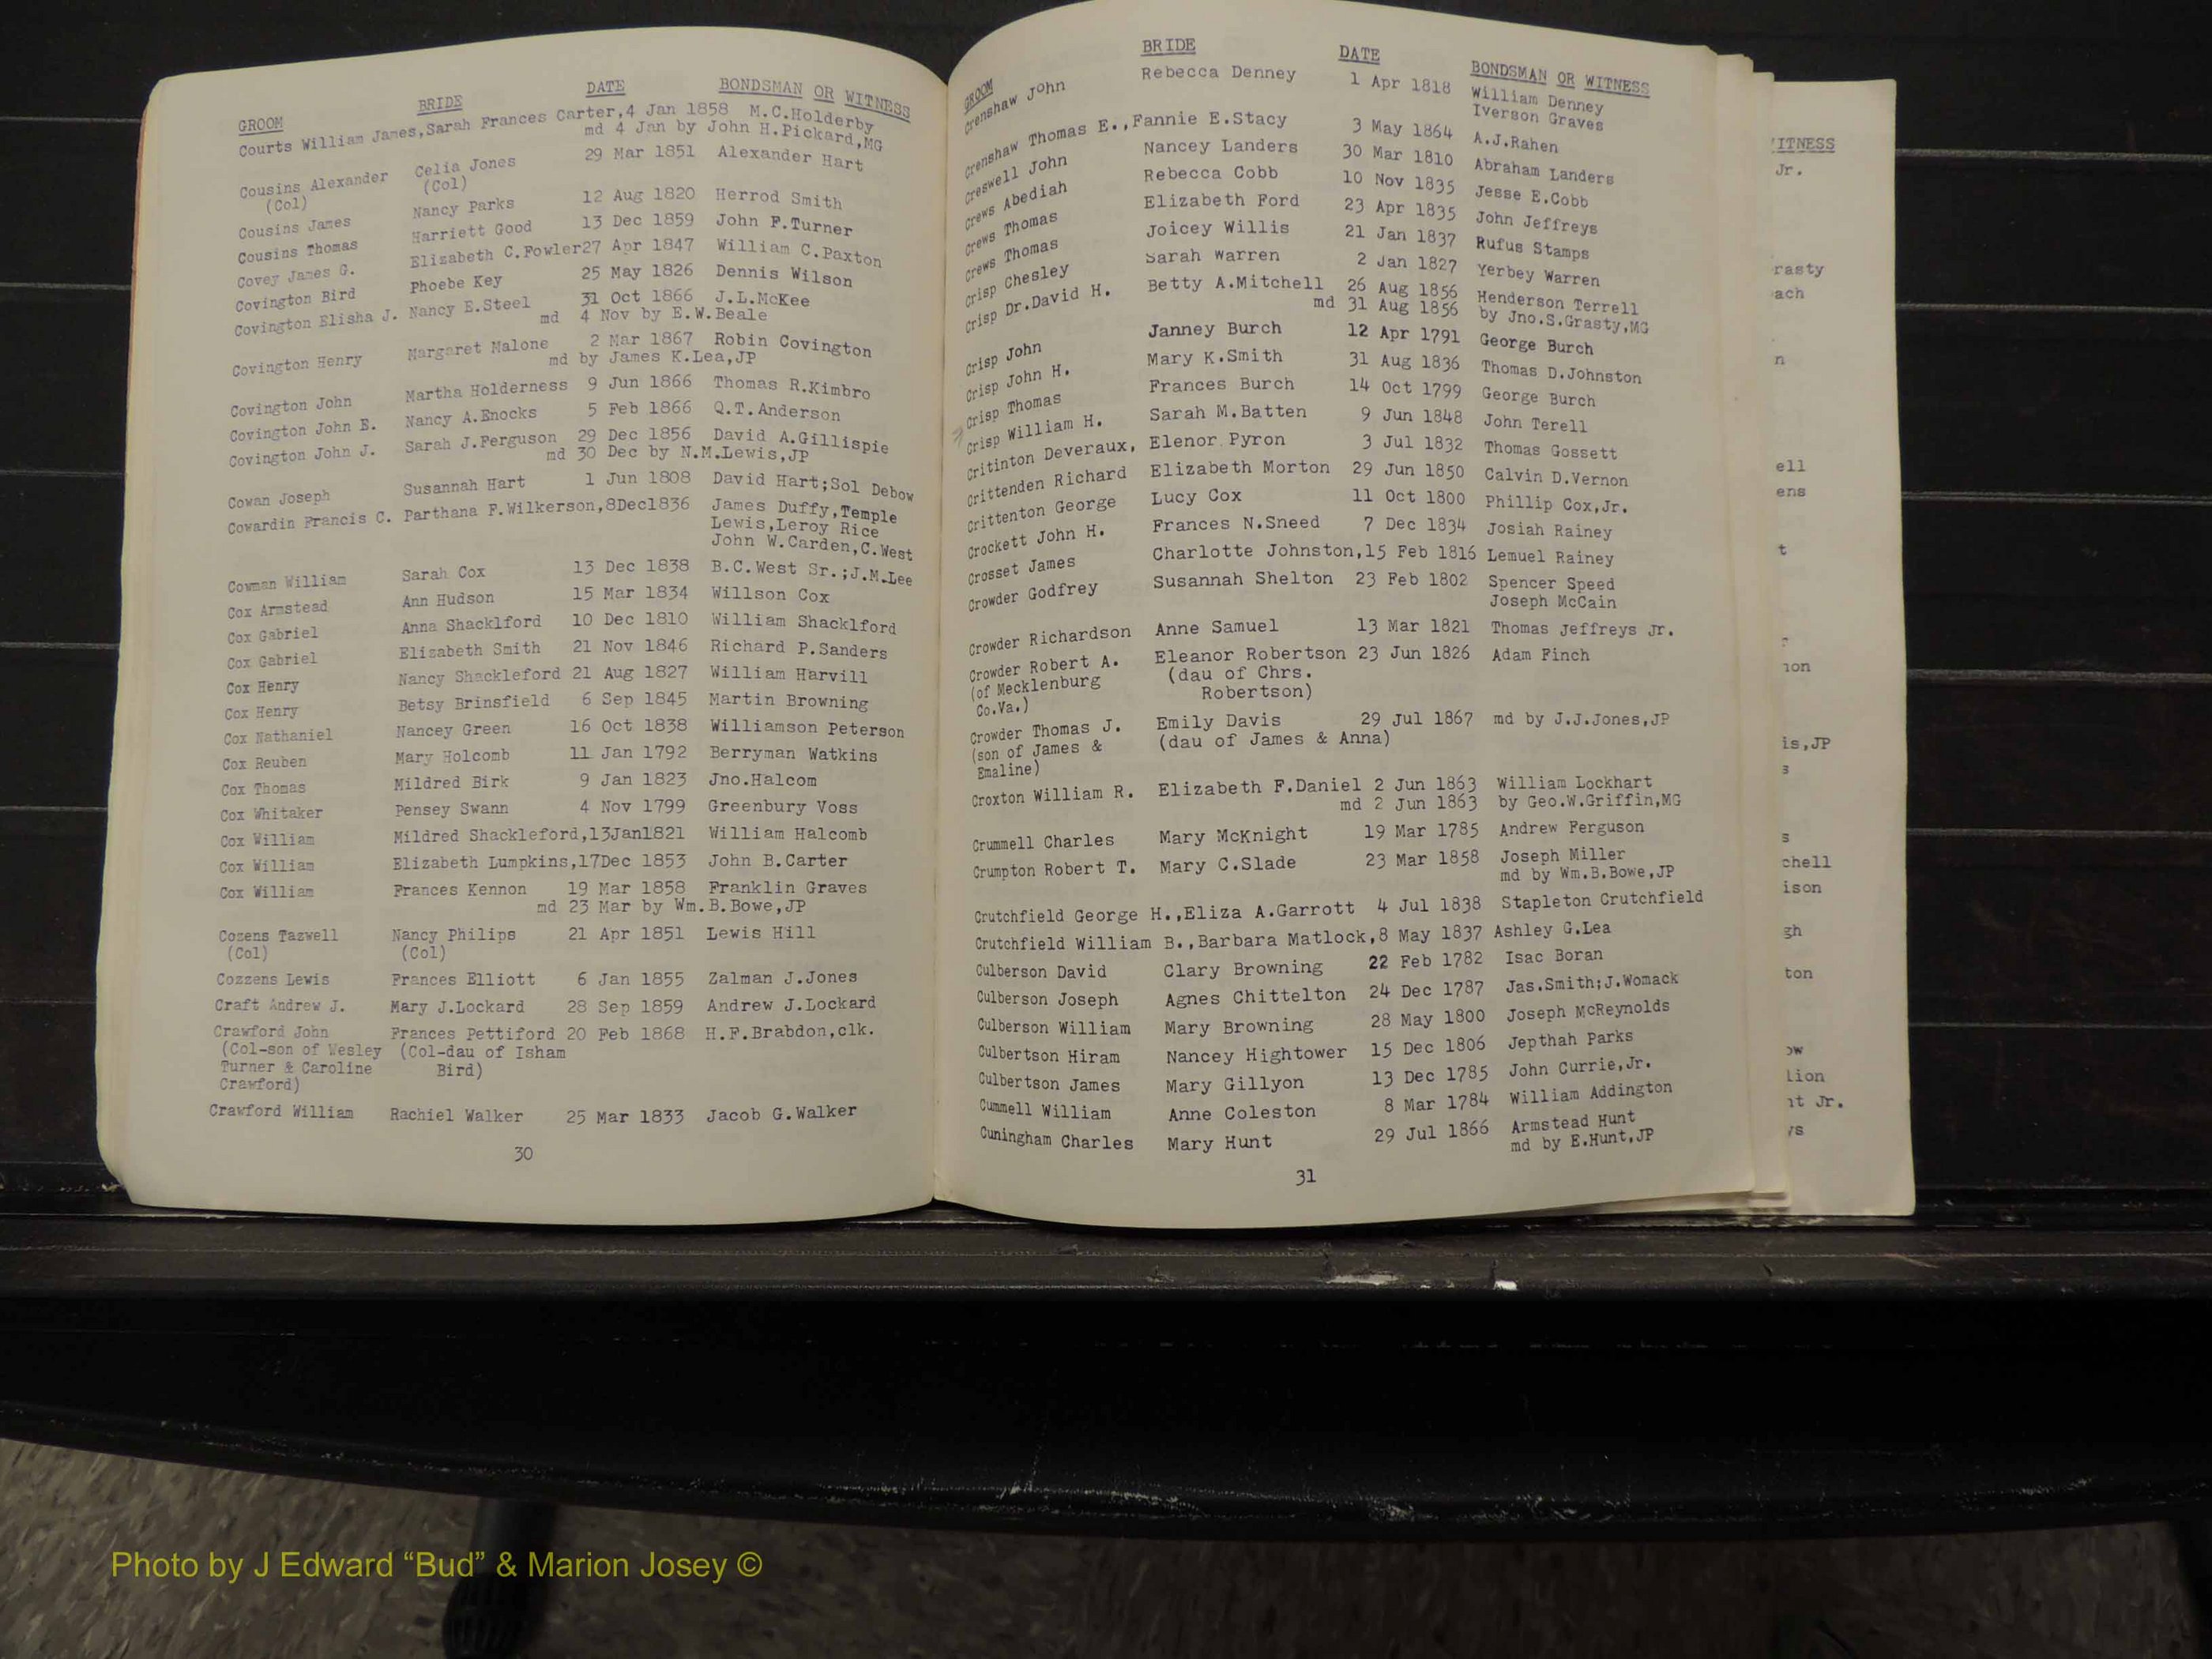 GROOM BRIDE DATE BONDSMAN OR WITNESS
Courts William James,Sarah Frances Carter,4 Jan 1858 M.C.Holderby
md 4 Jan by John H.Pickard,MG
Cousins Alexander Celia Jones 29 Mar 1851 Alexander Hart
(Col) (Col)
Cousins James Nancy Parks 12 Aug 1820 Herrod Smith
Cousins Thomas Harriett Good 13 Dec 1859 John F.Turner
Covey James G. Elizabeth C.Fowler27 Apr 1847 William C.Paxton
Covington Bird Phoebe Key 25 May 1826 Dennis Wilson
Covington Elisha J. Nancy E.Steel 31 Oct 1866 J.L.McKee
md 4 Nov by E.W.Beale
Covington Henry Margaret Malone 2 Mar 1867 Robin Covington
md by James K.Lea,JP
Covington John Martha Holderness 9 Jun 1866 Thomas R.Kimbro
Covington John E. Nancy A.Enocks 5 Feb 1866 Q.T.Anderson
Covington John J. Sarah J.Ferguson 29 Dec 1856 David A.Gillispie
md 30 Dec by N.M.Lewis,JP
Cowan Joseph Susannah Hart 1 Jun 1808 David Hart;Sol Debow
Cowardin Francis C. Parthana F.Wilkerson,8Dec1836 James Duffy,Temple
Lewis,Leroy Rice
John W.Carden,C.West
Cowman William Sarah Cox 13 Dec 1838 B.C.West Sr.;J.M.Lee
Cox Armstead Ann Hudson 15 Mar 1834 Willson Cox
Cox Gabriel Anna Shacklford 10 Dec 1810 William Shacklford
Cox Gabriel Elizabeth Smith 21 Nov 1846 Richard P.Sanders
Cox Henry Nancy Shackleford 21 Aug 1827 William Harvill
Cox Henry Betsy Brinsfield 6 Sep 1845 Martin Browning
Cox Nathaniel Nancey Green 16 Oct 1838 Williamson Peterson
Cox Reuben Mary Holcomb 11 Jan 1792 Berryman Watkins
Cox Thomas Mildred Birk 9 Jan 1823 Jno.Halcom
Cox Whitaker Pensey Swann 4 Nov 1799 Greenbury Voss
Cox William Mildred Shackleford,13Jan1821 William Halcomb
Cox William Elizabeth Lumpkins,17Dec 1853 John B.Carter
Cox William Frances Kennon 19 Mar 1858 Franklin Graves
md 23 Mar by Wm.B.Bowe,JP
Cozens Tazwell Nancy Philips 21 Apr 1851 Lewis Hill
(Col) (Col)
Cozzens Lewis Frances Elliott 6 Jan 1855 Zalman J.Jones
Craft Andrew J. Mary J.Lockard 28 Sep 1859 Andrew J.Lockard
Crawford John Frances Pettiford 20 Feb 1868 H.F.Brabdon,clk.
(Col-son of Wesley (Col-dau of Isham
Turner & Caroline Bird)
Crawford)
Crawford William Rachiel Walker 25 Mar 1833 Jacob G.Walker
30
GROOM BRIDE DATE BONDSMAN OR WITNESS
Crenshaw John Rebecca Denney 1 Apr 1818 William Denney
Iverson Graves
Crenshaw Thomas E.,Fannie E.Stacy 3 May 1864 A.J.Rahen
Creswell John Nancey Landers 30 Mar 1810 Abraham Landers
Crews Abediah Rebecca Cobb 10 Nov 1835 Jesse E.Cobb
Crews Thomas Elizabeth Ford 23 Apr 1835 John Jeffreys
Crews Thomas Joicey Willis 21 Jan 1837 Rufus Stamps
Crisp Chesley Sarah Warren 2 Jan 1827 Yerbey Warren
Crisp Dr.David H. Betty A.Mitchell 26 Aug 1856 Henderson Terrell
md 31 Aug 1856 by Jno.S.Grasty,MG
Crisp John Janney Burch 12 Apr 1791 George Burch
Crisp John H. Mary K.Smith 31 Aug 1836 Thomas D.Johnston
Crisp Thomas Frances Burch 14 Oct 1799 George Burch
Crisp William H. Sarah M.Batten 9 Jun 1848 John Terell
Critinton Deveraux, Elenor Pyron 3 Jul 1832 Thomas Gossett
Crittenden Richard Elizabeth Morton 29 Jun 1850 Calvin D.Vernon
Crittenton George Lucy Cox 11 Oct 1800 Phillip Cox,Jr.
Crockett John H. Frances N.Sneed 7 Dec 1834 Josiah Rainey
Crosset James Charlotte Johnston,15 Feb 1816 Lemuel Rainey
Crowder Godfrey Susannah Shelton 23 Feb 1802 Spencer Speed
Joseph McCain
Crowder Richardson Anne Samuel 13 Mar 1821 Thomas Jeffreys Jr.
Crowder Robert A. Eleanor Robertson 23 Jun 1826 Adam Finch
(of Mecklenburg (dau of Chrs.
Co.Va.) Robertson)
Crowder Thomas J. Emily Davis 29 Jul 1867 md by J.J.Jones,JP
(son of James & (dau of James & Anna)
Emaline)
Croxton William R. Elizabeth F.Daniel 2 Jun 1863 William Lockhart
md 2 Jun 1863 by Geo.W.Griffin,MG
Crummell Charles Mary McKnight 19 Mar 1785 Andrew Ferguson
Crumpton Robert T. Mary C.Slade 23 Mar 1858 Joseph Miller
md by Wm.B.Bowe,JP
Crutchfield George H.,Eliza A.Garrott 4 Jul 1838 Stapleton Crutchfield
Crutchfield William B.,Barbara Matlock,8 May 1837 Ashley G.Lea
Culberson David Clary Browning 22 Feb 1782 Isac Boran
Culberson Joseph Agnes Chittelton 24 Dec 1787 Jas.Smith;J.Womack
Culberson William Mary Browning 28 May 1800 Joseph McReynolds
Culbertson Hiram Nancey Hightower 15 Dec 1806 Jepthah Parks
Culbertson James Mary Gillyon 13 Dec 1785 John Currie,Jr.
Cummell William Anne Coleston 8 Mar 1784 William Addington
Cuningham Charles Mary Hunt 29 Jul 1866 Armstead Hunt
md by E.Hunt,JP
31
Jr.
is,JP
Photo by J Edward “Bud” & Marion Josey ©